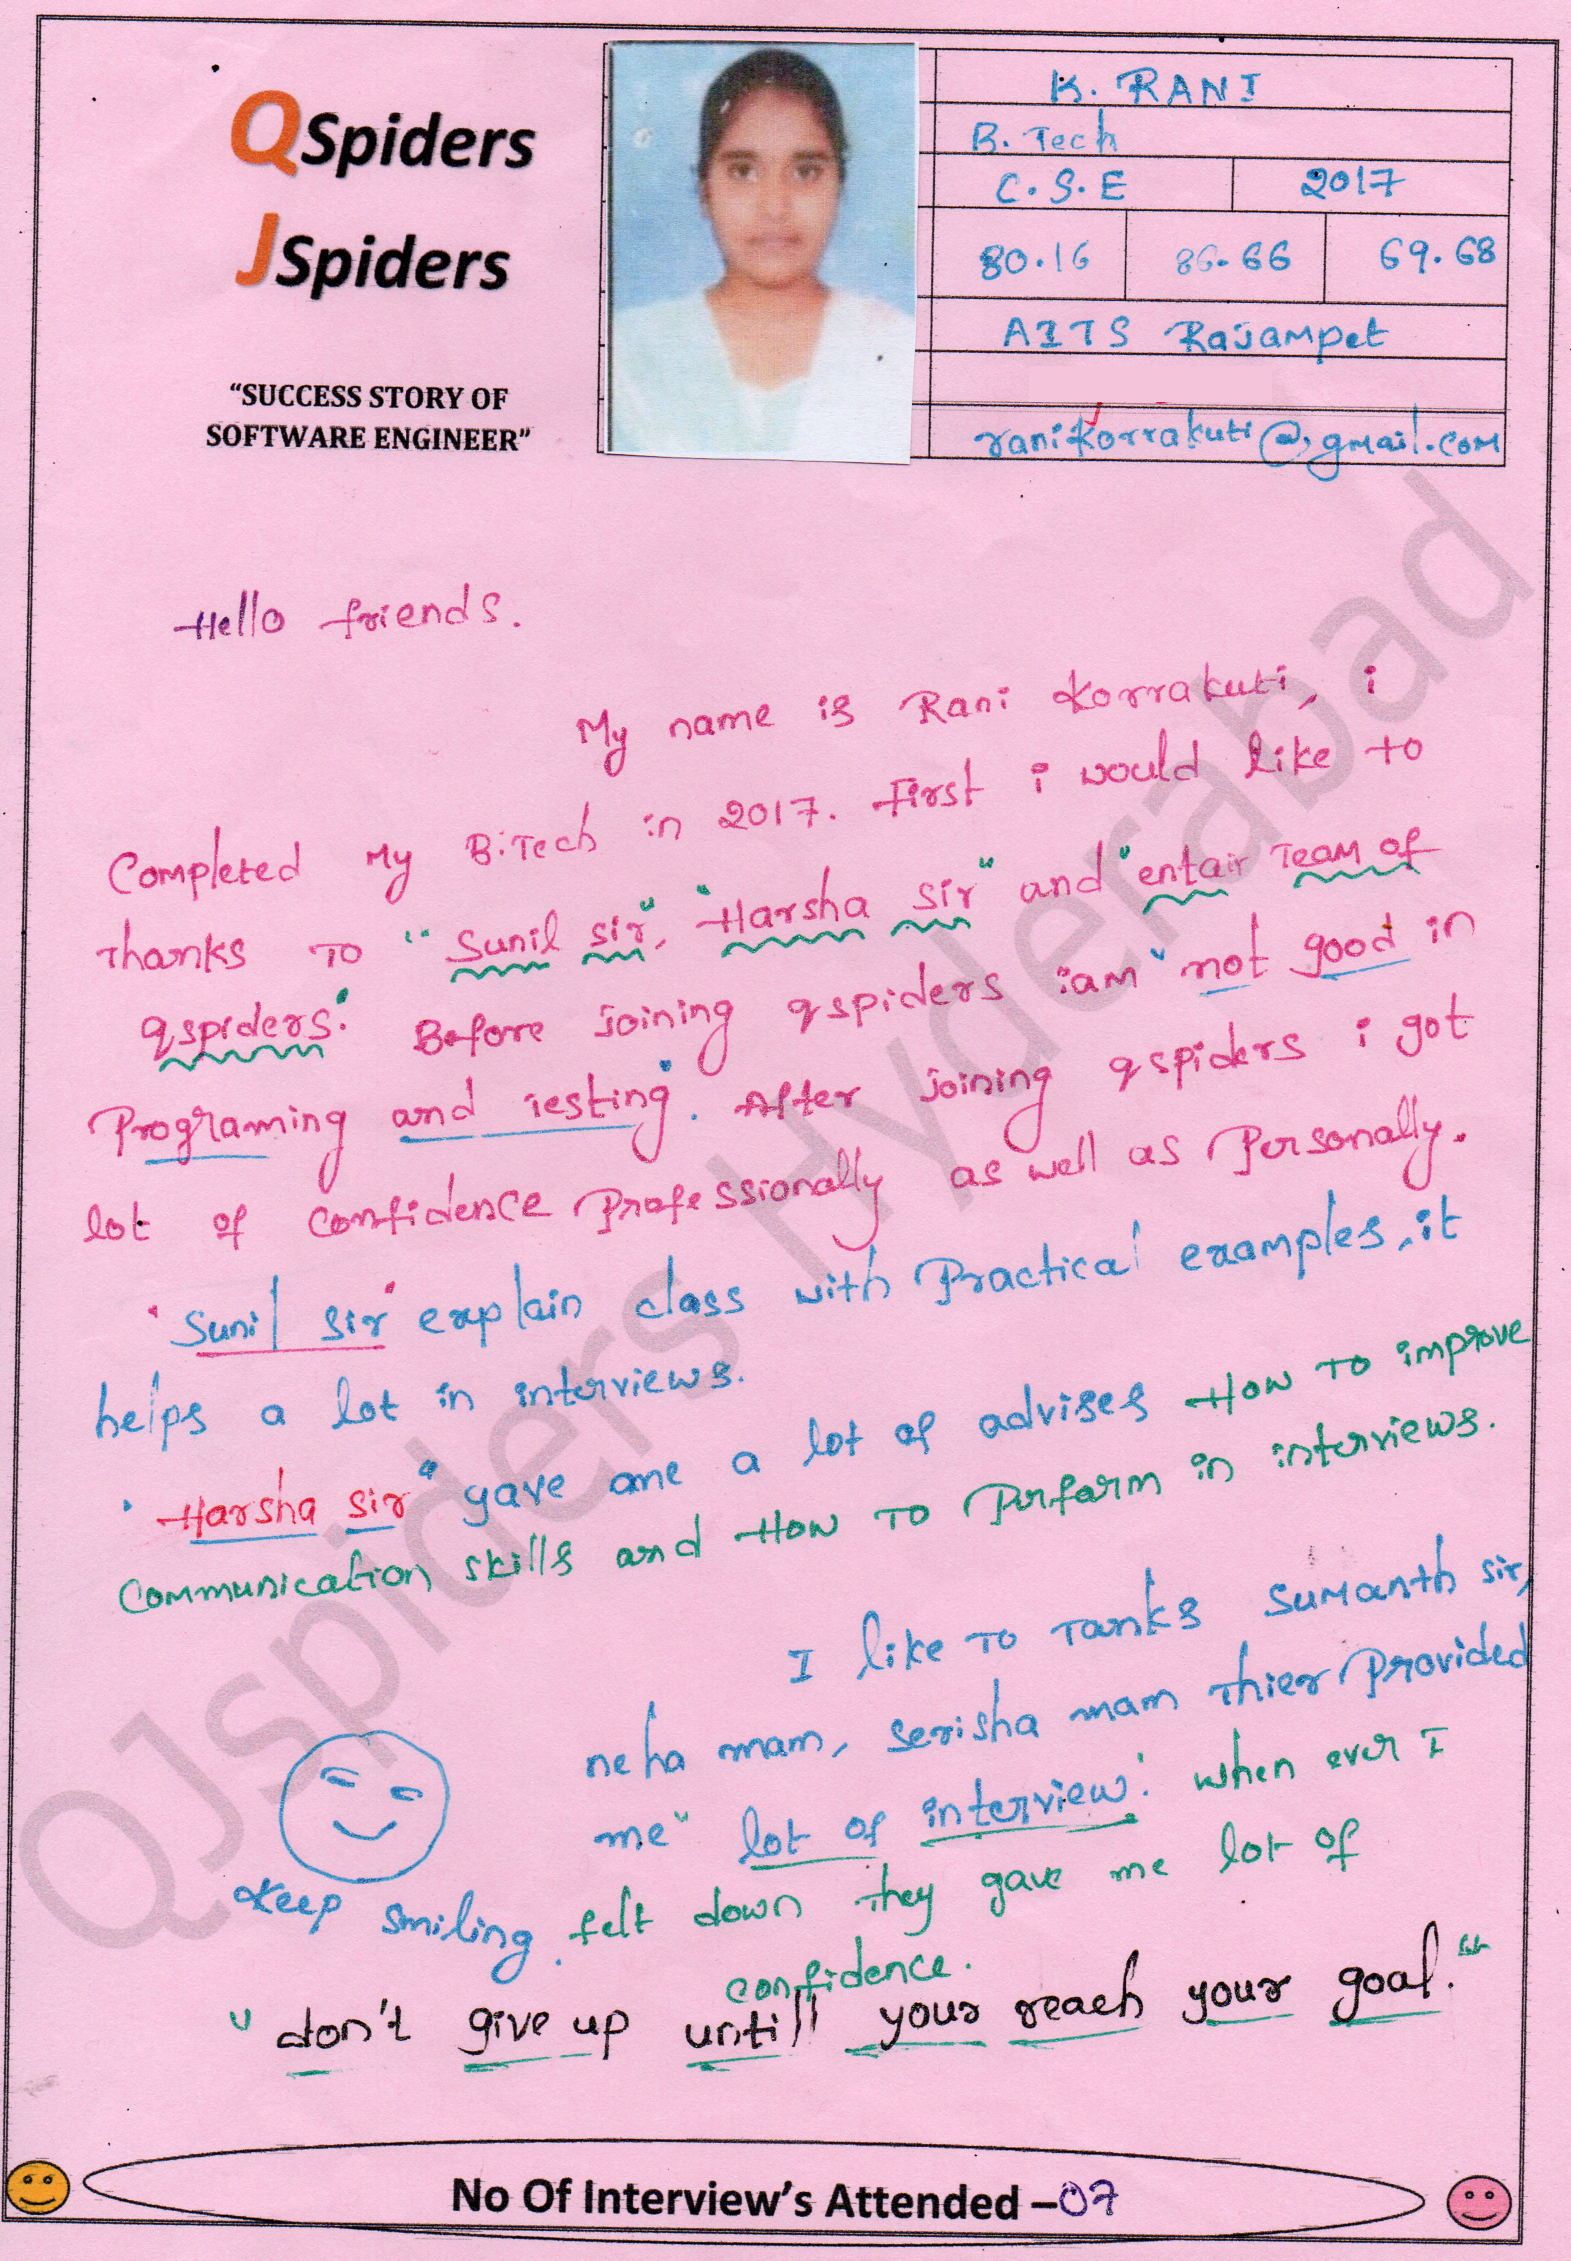 QSpiders
JSpiders
"SUCCESS STORY OF
SOFTWARE ENGINEER"
K. RANI
B. Tech
C.S.E 2017
80.16 86.66 69.68
AITS Rajampet
ranikorrakuti@gmail.com
Hello friends.
My name is Rani Korrakuti, i
Completed My B.Tech in 2017. First i would like to
Thanks To "Sunil sir", "Harsha sir" and "entair Team of
qspiders." Before joining qspiders iam "not good in
Programing and Testing". After joining qspiders i got
lot of confidence Professionally as well as Personally.
"Sunil sir" explain class with Practical examples, it
helps a lot in interviews.
"Harsha sir" gave me a lot of advises How To improve
Communication skills and How To Perform in interviews.
I like To Tanks Sumanth sir,
neha mam, serisha mam Thier Provided
me "lot of interview." when ever I
Keep smiling. felt down They gave me lot of
confidence.
"don't give up untill your reach your goal."
No Of Interview's Attended –07
QJspiders Hyderabad